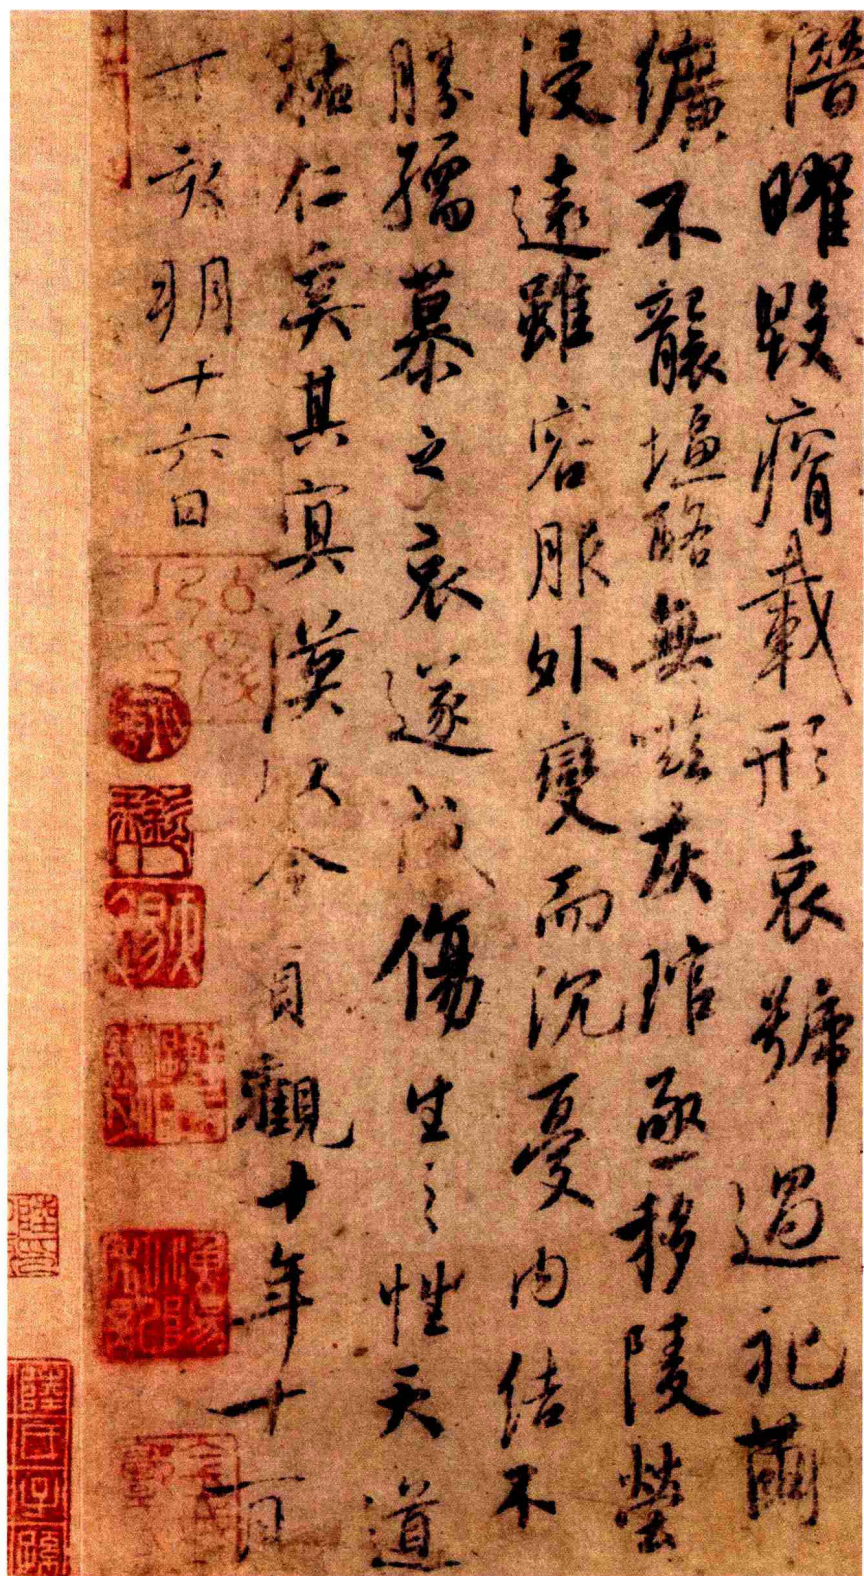 潛曜毀瘠載形哀號過礼繭
纊不襲塩酪無嗞灰琯亟移陵塋
浸遠雖容服外變而沉憂內結不
勝孺慕之哀遂成傷生之性天道
祐仁奚其冥漠以今貞觀十年十一月
丁亥朔十六日